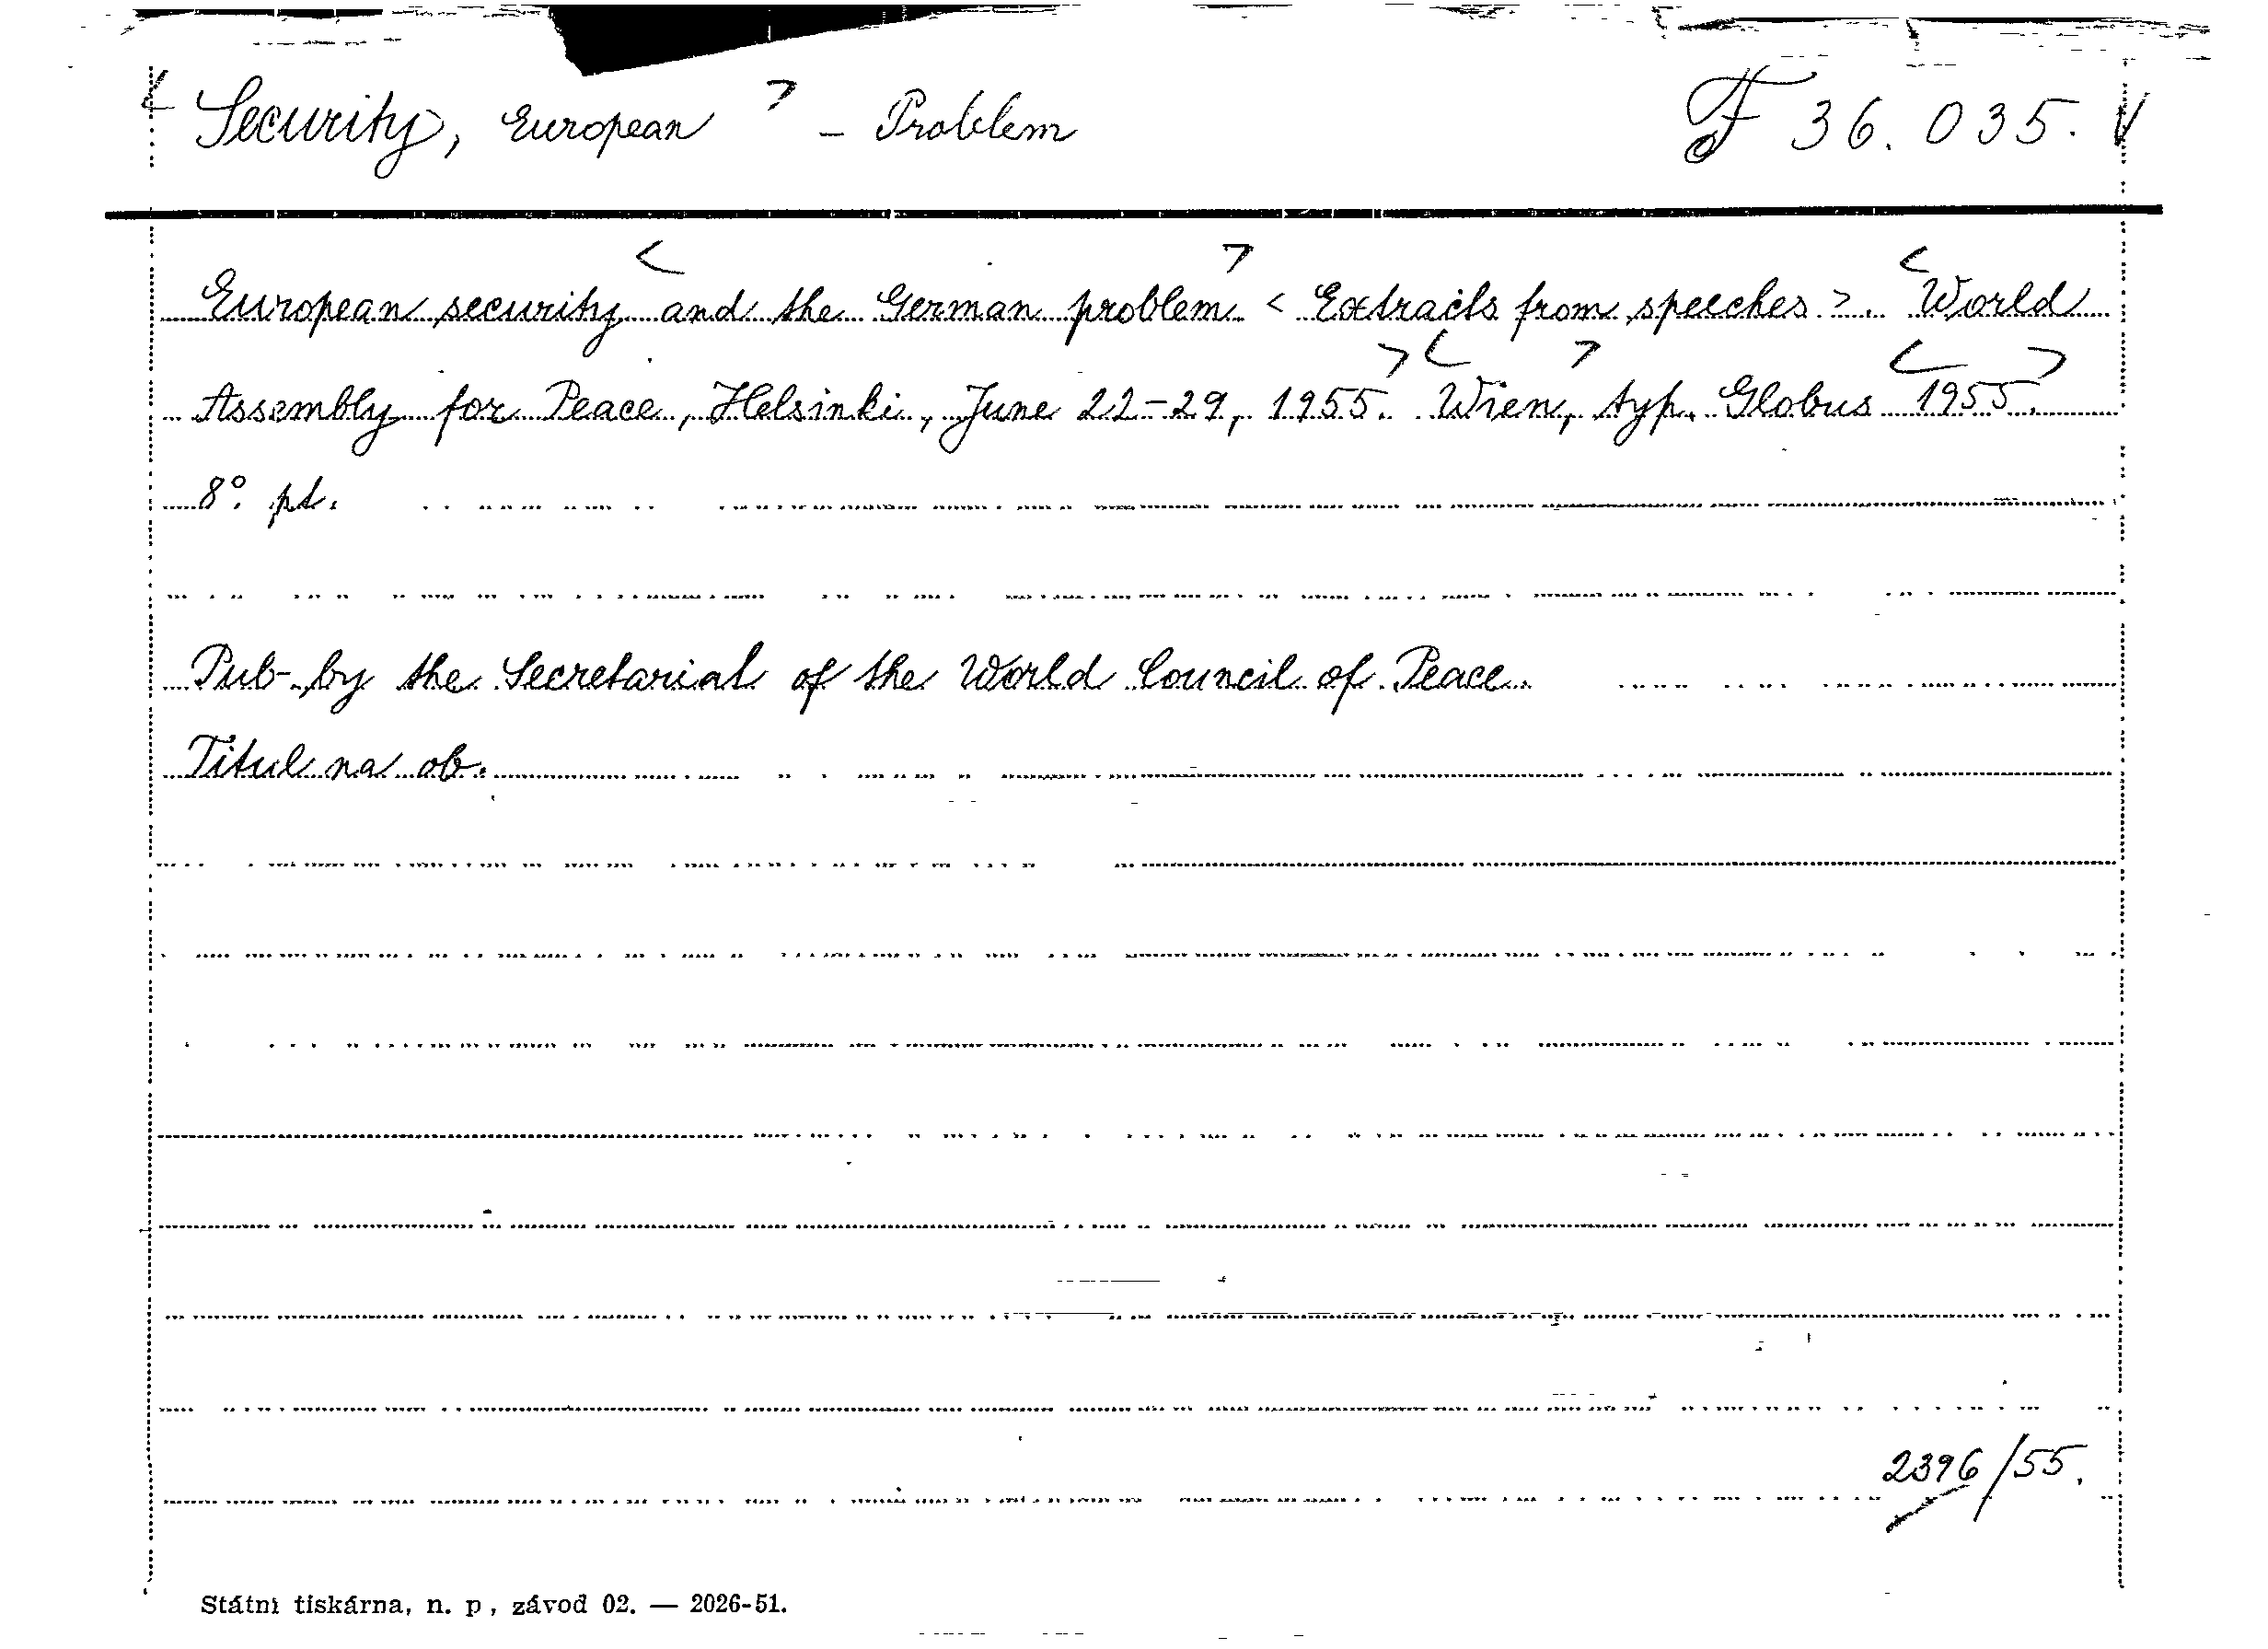 < Security, European > - Problem F 36.035. V
European security < and the German problem > < Extracts from speeches >. < World
Assembly for Peace, Helsinki, June 22-29, 1955. > < Wien, > typ. Globus < 1955. >
8°. pt.
Pub-. by the Secretariat of the World Council of Peace.
Titul na ob.
2396/55.
Státní tiskárna, n. p., závod 02. — 2026-51.